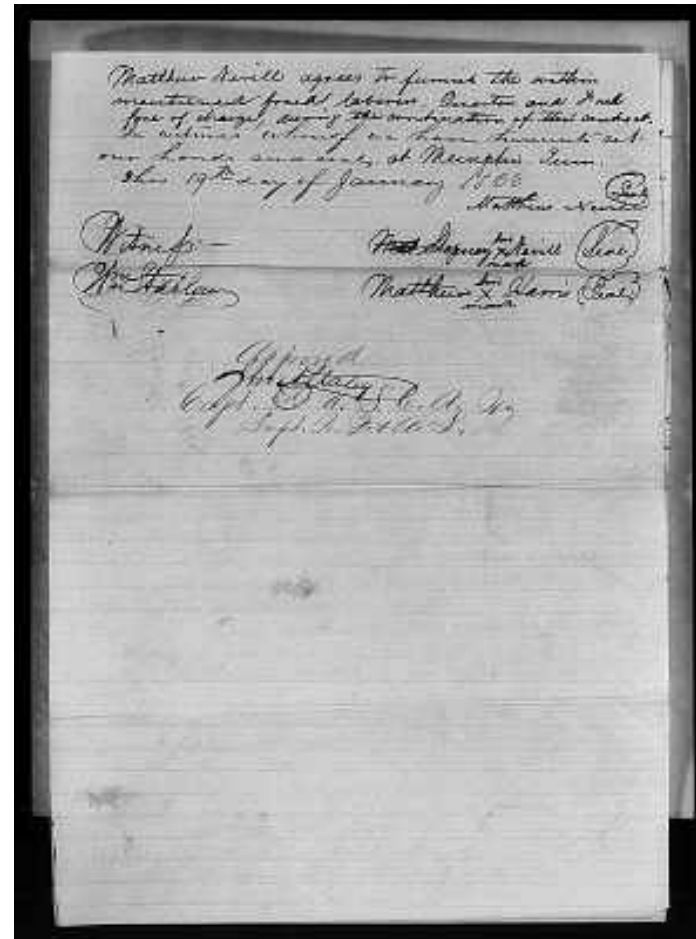 Matthew Nevill agrees to furnish the within
mentioned freed laborers, Quarters and Fuel
free of charge, during the continuation of this contract.
In witness whereof we have hereunto set
our hands and seals, at Memphis Tenn.
this 19th day of January 1866
Matthew Nevill (Seal)
Witness — his Nevill (Seal)
X
mark
Wm Matthew his Harris (Seal)
X
mark
Approved
Capt.
Supt.